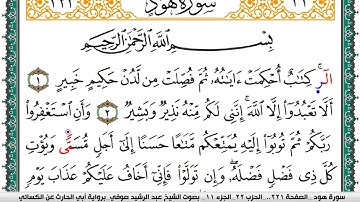 ٢٢١ سورة هود ١١
بِسْمِ اللَّهِ الرَّحْمَٰنِ الرَّحِيمِ
الٓر ۚ كِتَٰبٌ أُحْكِمَتْ ءَايَٰتُهُۥ ثُمَّ فُصِّلَتْ مِن لَّدُنْ حَكِيمٍ خَبِيرٍ ١
أَلَّا تَعْبُدُوٓا۟ إِلَّا ٱللَّهَ ۚ إِنَّنِى لَكُم مِّنْهُ نَذِيرٌ وَبَشِيرٌ ٢ وَأَنِ ٱسْتَغْفِرُوا۟
رَبَّكُمْ ثُمَّ تُوبُوٓا۟ إِلَيْهِ يُمَتِّعْكُم مَّتَٰعًا حَسَنًا إِلَىٰٓ أَجَلٍ مُّسَمًّى وَيُؤْتِ
كُلَّ ذِى فَضْلٍ فَضْلَهُۥ ۖ وَإِن تَوَلَّوْا۟ فَإِنِّىٓ أَخَافُ عَلَيْكُمْ عَذَابَ يَوْمٍ
سورة هود _ الصفحة ٢٢١_ الحزب ٢٢_ الجزء ١١_ بصوت الشيخ عبد الرشيد صوفي_ برواية أبي الحارث عن الكسائي